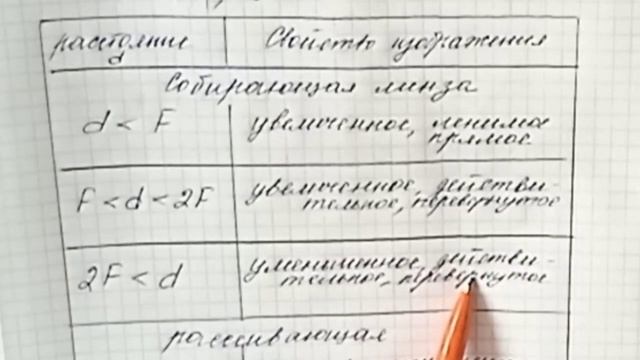 расстояние d Свойство изображения
Собирающая линза
d < F увеличенное, мнимое
прямое
F < d < 2F увеличенное, действи-
тельное, перевернутое
2F < d уменьшенное, действи-
тельное, перевернутое
рассеивающая